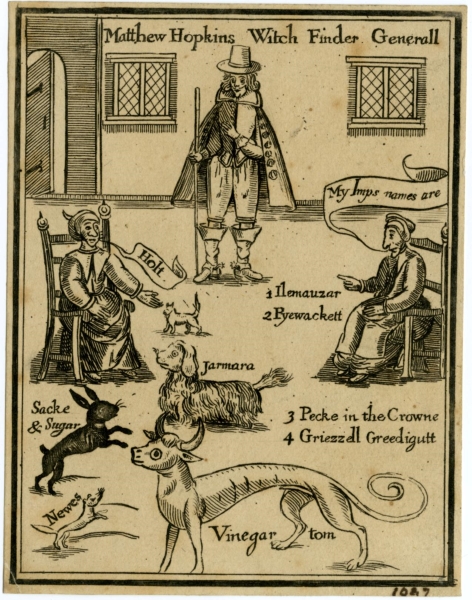 Matthew Hopkins Witch Finder Generall
My Imps names are
Holt
1 Ilemauzar
2 Pyewackett
Jarmara
Sacke
& Sugar
3 Pecke in the Crowne
4 Griezzell Greedigutt
Newes
Vinegar tom
1047